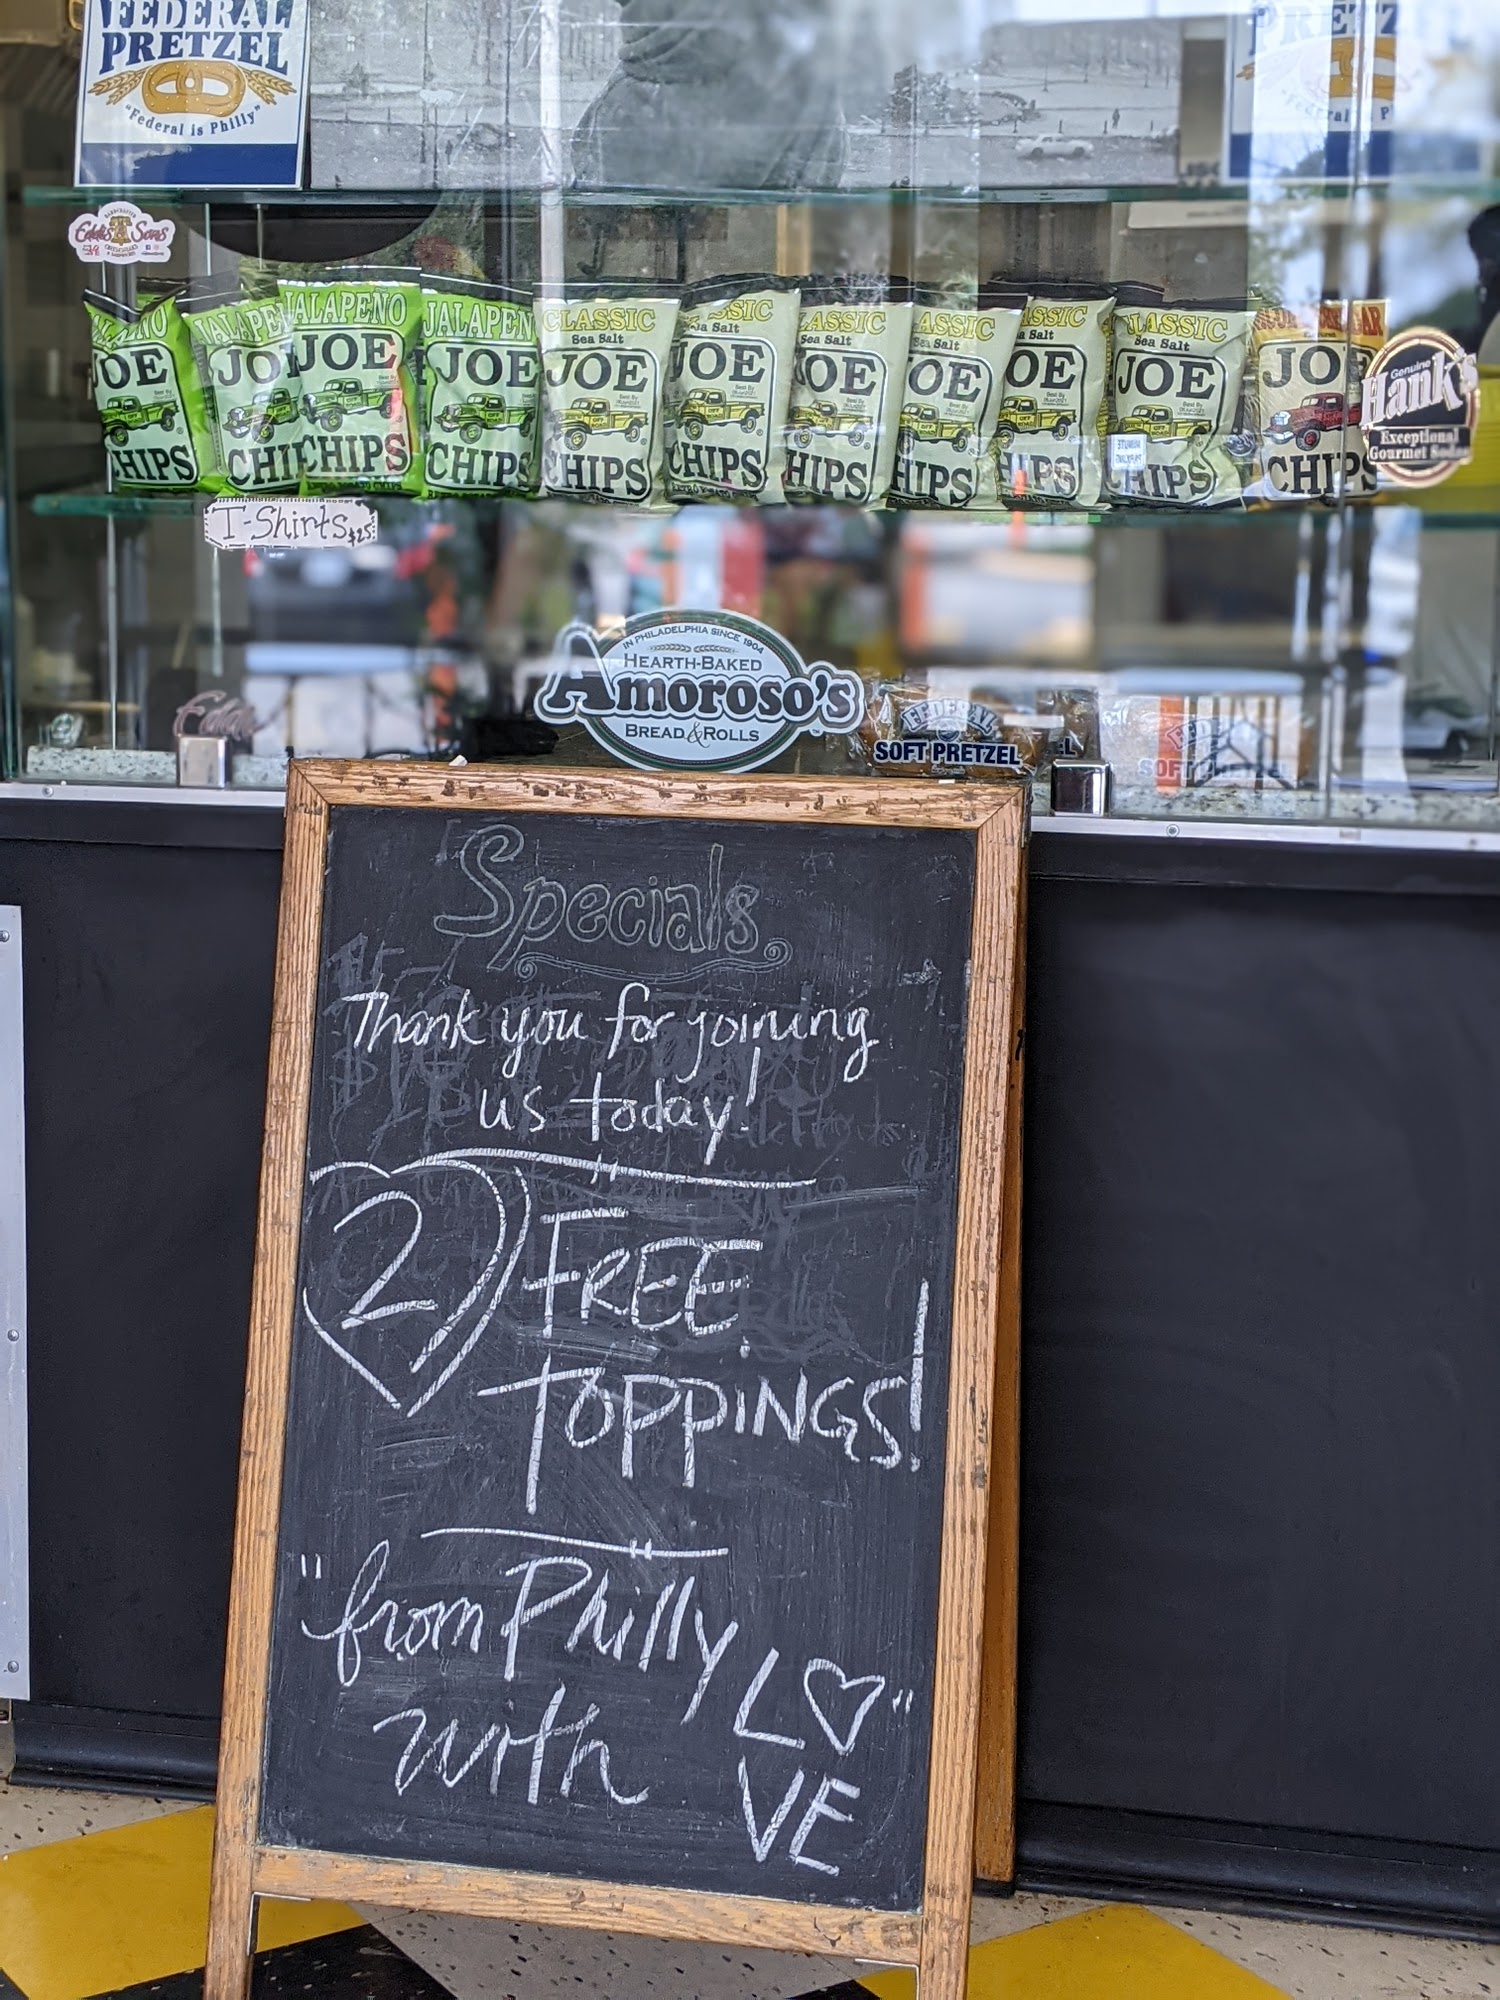 FEDERAL
PRETZEL
"Federal is Philly"
PRETZ
Eddis Sons
JALAPENO JOE CHIPS
JALAPENO JOE CHIPS
JALAPENO JOE CHIPS
CLASSIC Sea Salt JOE CHIPS
CLASSIC Sea Salt JOE CHIPS
CLASSIC Sea Salt JOE CHIPS
CLASSIC Sea Salt JOE CHIPS
CLASSIC Sea Salt JOE CHIPS
CLASSIC Sea Salt JOE CHIPS
JOE CHIPS
Genuine
Hank's
Exceptional
Gourmet Sodas
T-Shirts $25
IN PHILADELPHIA SINCE 1904
HEARTH-BAKED
Amoroso's
BREAD & ROLLS
FEDERAL
SOFT PRETZEL
Specials
Thank you for joining
us today!
2 FREE
TOPPINGS!
"from Philly
with LOVE"